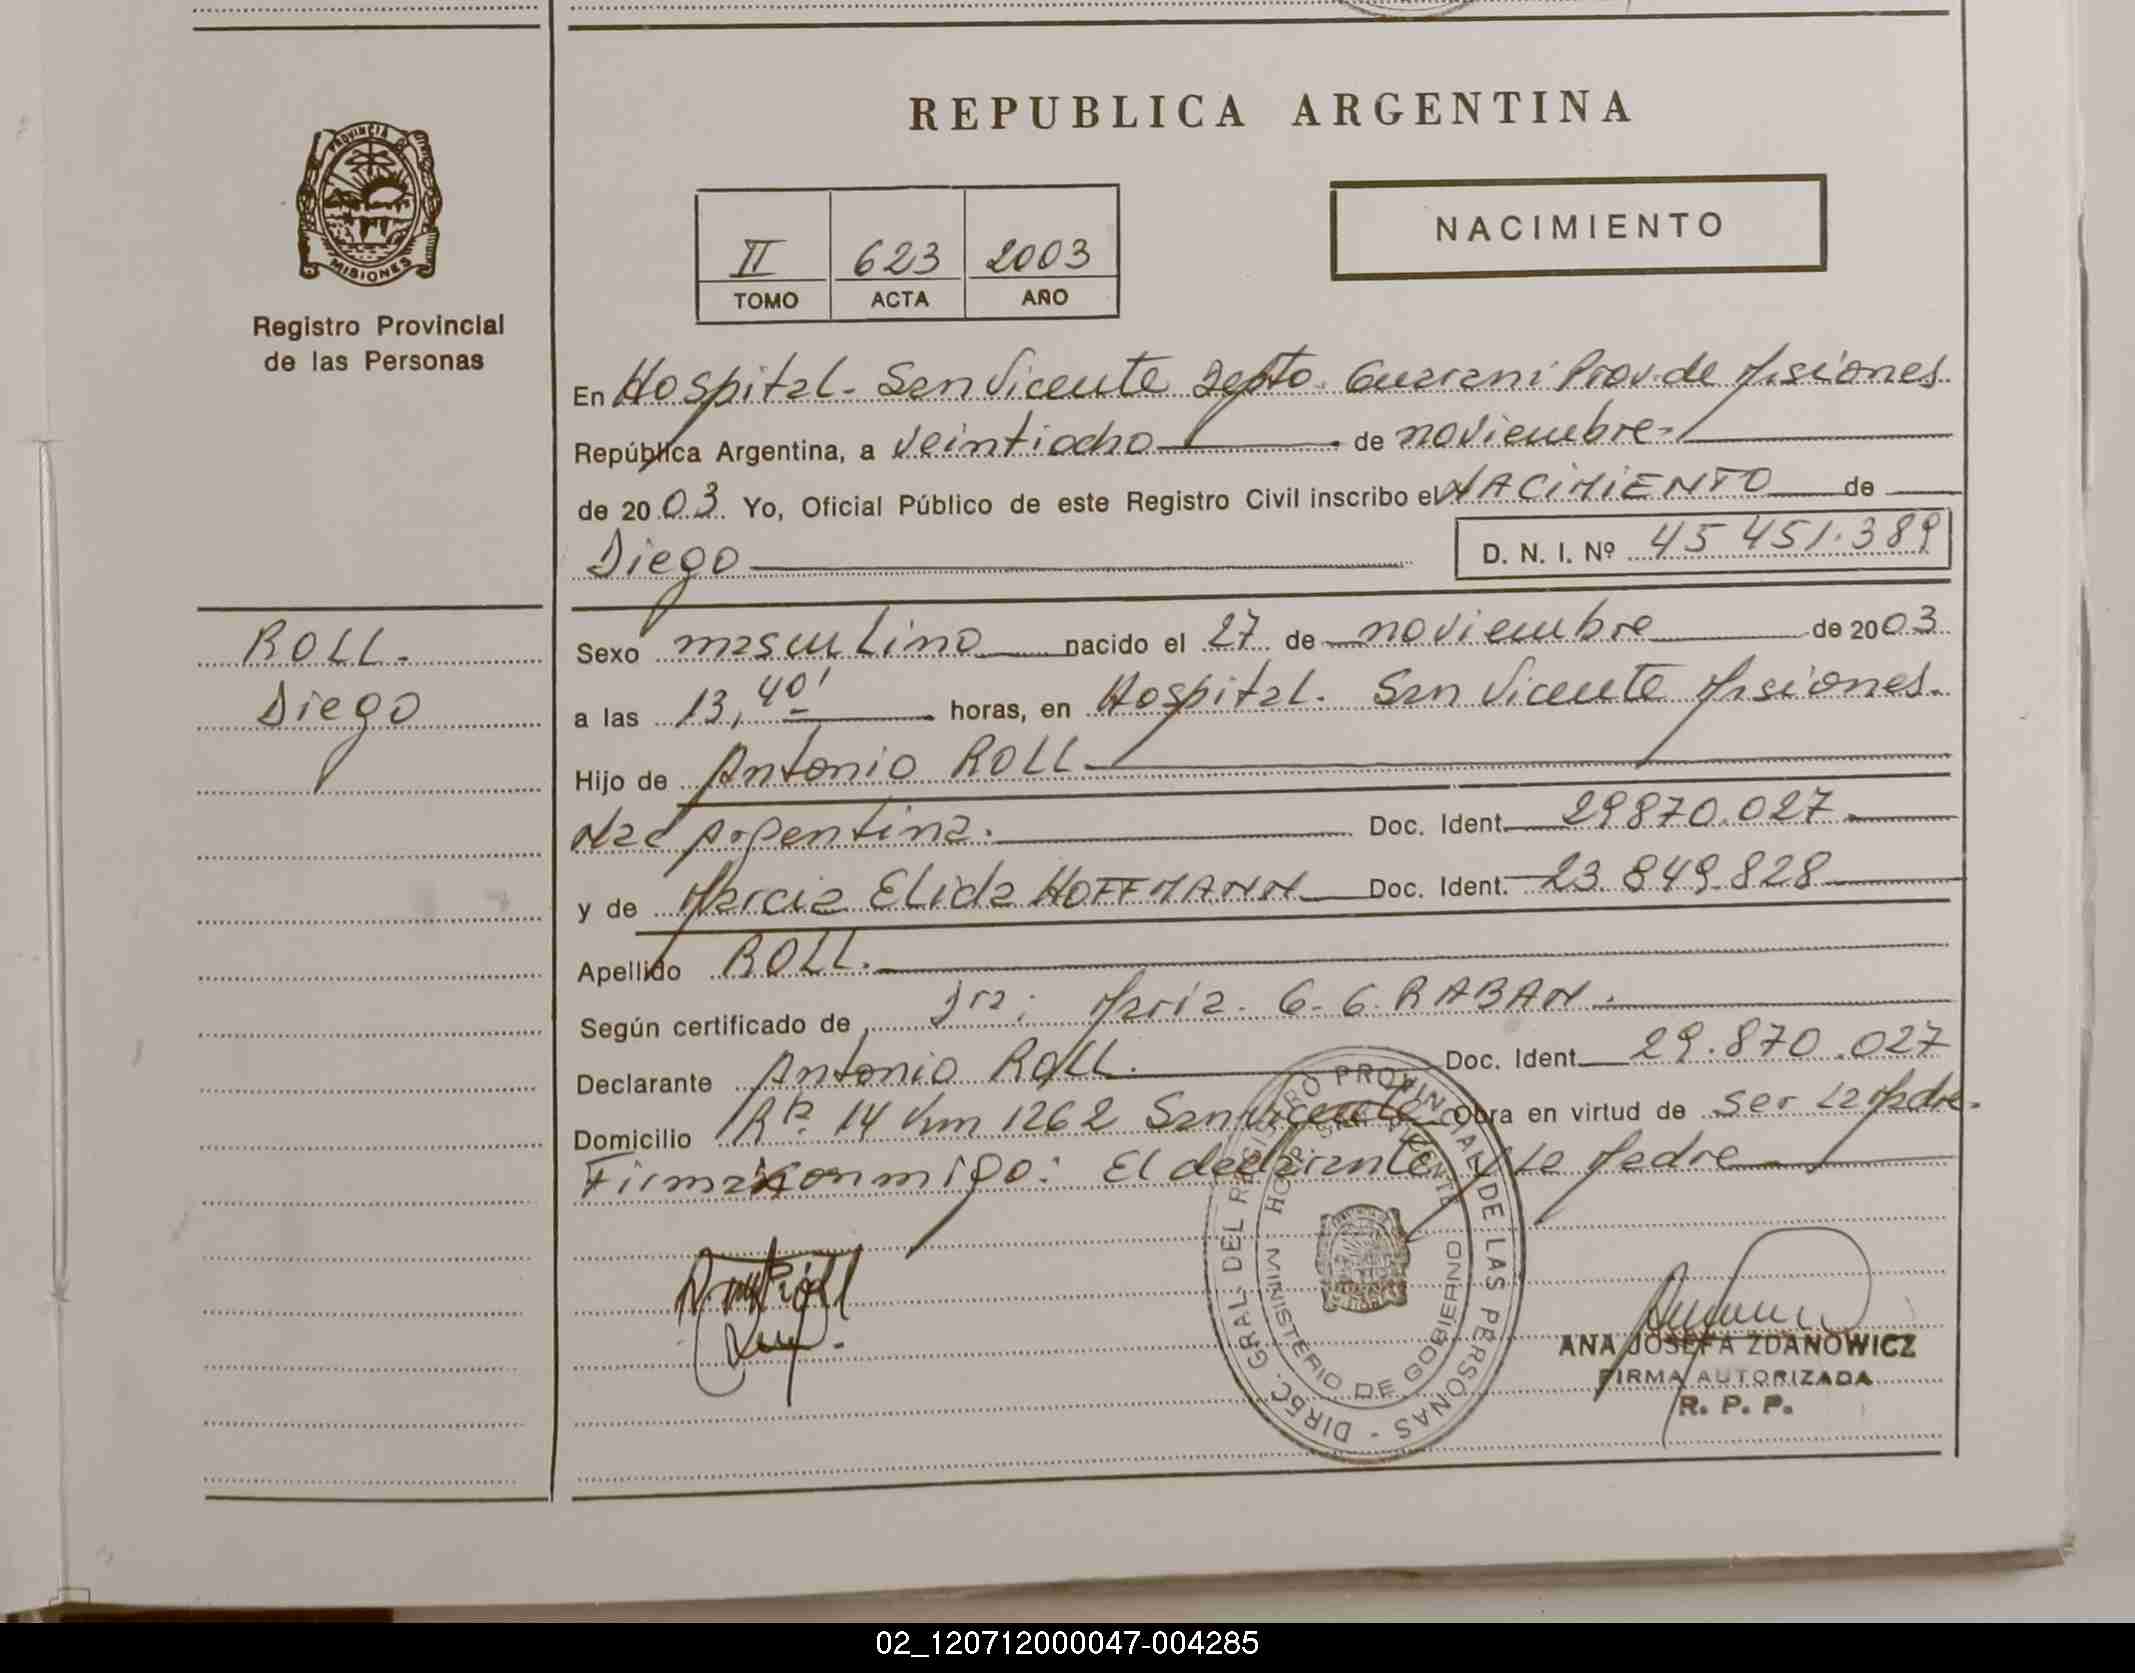 REPUBLICA ARGENTINA
PROVINCIA
MISIONES
Registro Provincial
de las Personas
II 623 2003
TOMO ACTA AÑO
NACIMIENTO
En Hospital - San Vicente Depto. Guarani Prov. de Misiones
República Argentina, a veintiocho de noviembre -
de 2003 Yo, Oficial Público de este Registro Civil inscribo el NACIMIENTO de
Diego D. N. I. Nº 45 451.389
ROLL.
Diego
Sexo masculino nacido el 27 de noviembre de 2003
a las 13,40' horas, en Hospital - San Vicente Misiones.
Hijo de Antonio ROLL
Nac Argentina. Doc. Ident. 29870.027
y de Marcia Elida HOFFMANN Doc. Ident. 23.849.828
Apellido ROLL.
Según certificado de Sra: María. G. G. RABAN.
Declarante Antonio Roll. Doc. Ident. 29.870.027
Domicilio Rta. 14 Km 1262 San Vicente Obra en virtud de ser la Madre.
Firma conmigo: El declarante y la Madre
DIREC. GRAL. DEL REGISTRO PROVINCIAL DE LAS PERSONAS -
HOSP. SAN VICENTE
MINISTERIO DE GOBIERNO
ANA JOSEFA ZDANOWICZ
FIRMA AUTORIZADA
R. P. P.
02_120712000047-004285